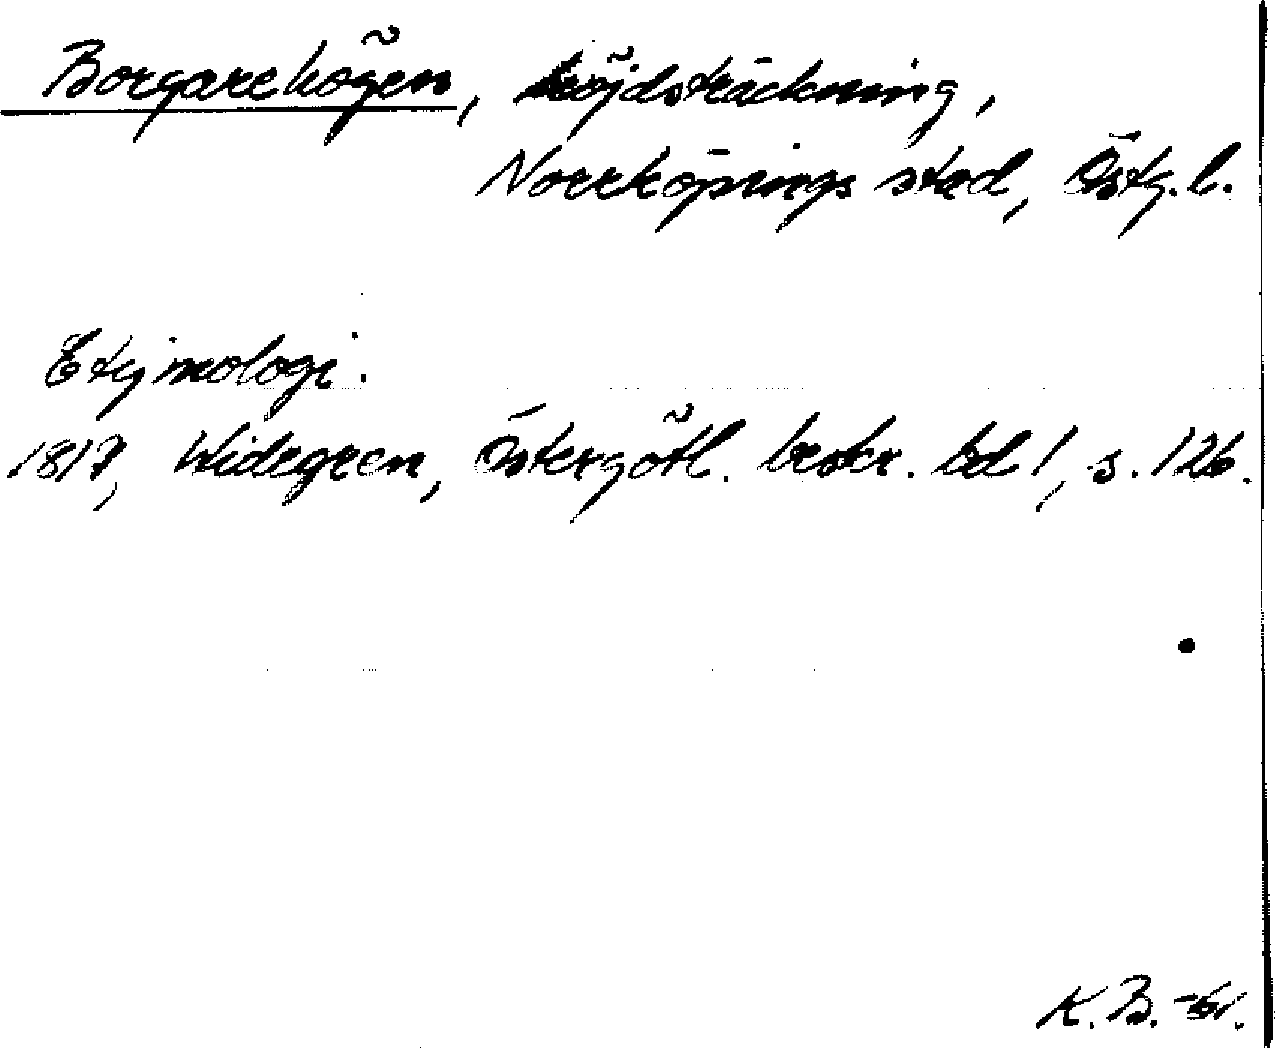 Borgarehögen, höjdsträckning,
Norrköpings stad, Östg. l.
Etymologi.
1817, Widegren, Östergötl. beskr. bd 1, s. 126.
K. B.-